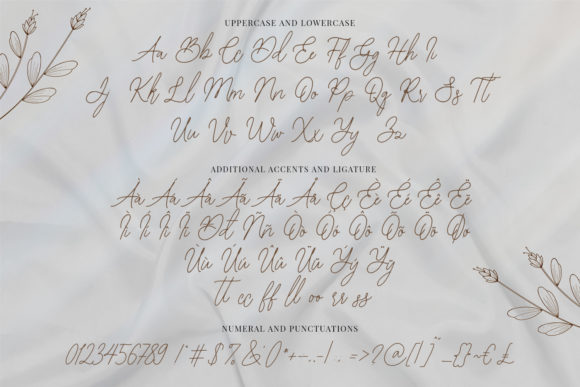 UPPERCASE AND LOWERCASE
Aa Bb Cc Dd Ee Ff Gg Hh Ii
Jj Kk Ll Mm Nn Oo Pp Qq Rr Ss Tt
Uu Vv Ww Xx Yy Zz
ADDITIONAL ACCENTS AND LIGATURE
Àà Áá Ââ Ãã Ää Åå Çç Èè Éé Êê Ëë
Ìì Íí Îî Ïï Ðđ Ññ Òò Óó Ôô Õõ Öö Øø
Ùù Úú Ûû Üü Ýý Ÿÿ
tt cc ff ll oo rr ss
NUMERAL AND PUNCTUATIONS
0123456789 ! " # $ % & ' () * + - , - . / : ; = > ? @ [ \ ] ^ _ { } ~ € £